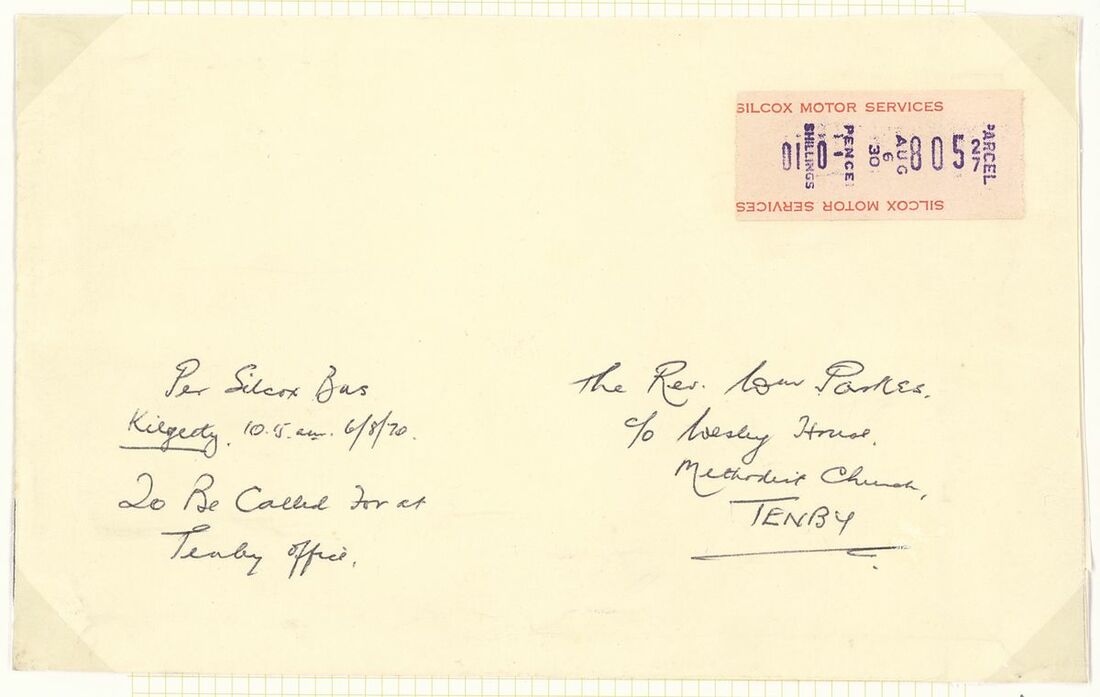 SILCOX MOTOR SERVICES
PARCEL
27
805
AUG
6
30
PENCE
11
SHILLINGS
010
SILCOX MOTOR SERVICES
Per Silcox Bus
Kilgetty. 10.15. am. 6/8/70.
To Be Called For at
Tenby office.
The Rev. Wm Parkes.
c/o Wesley House.
Methodist Church,
TENBY